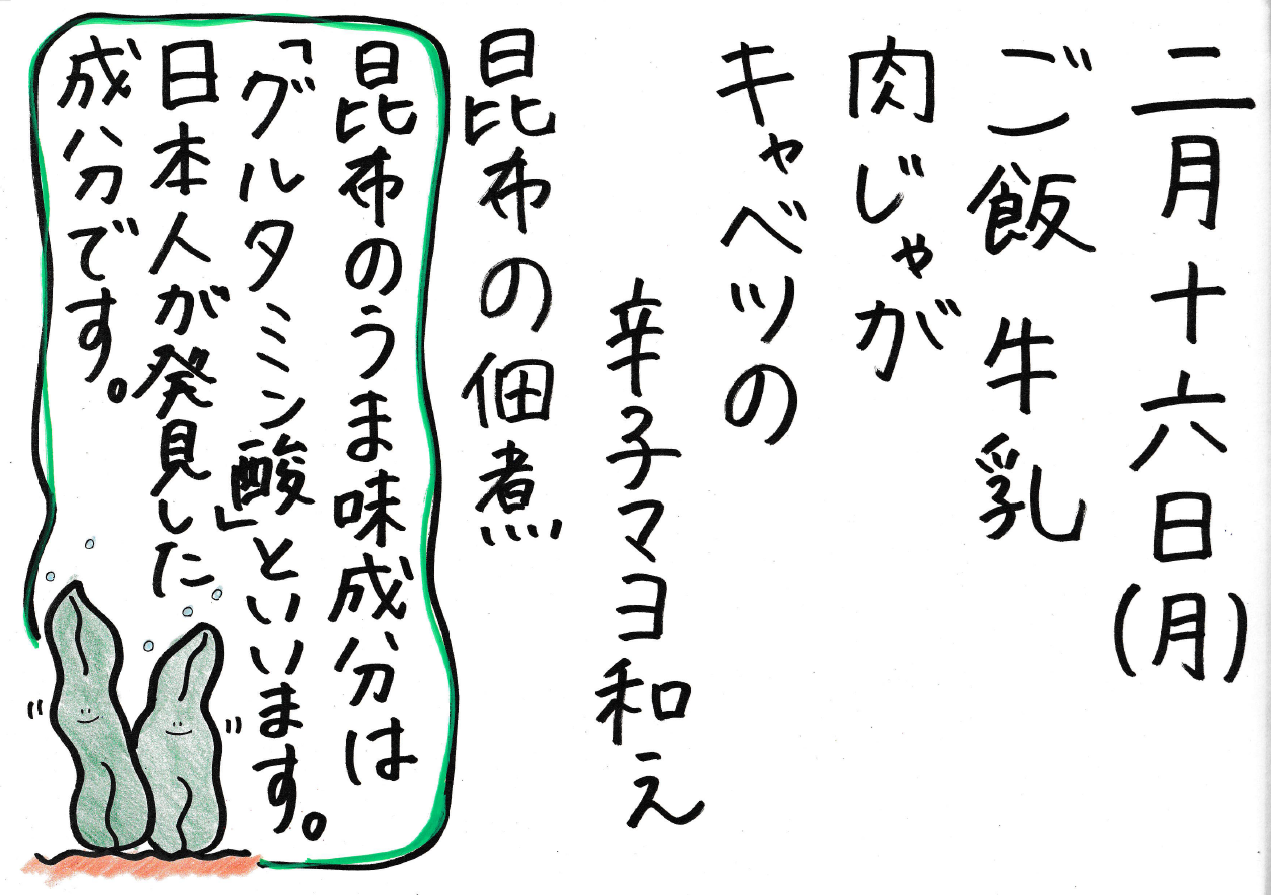 二月十六日(月)
ご飯 牛乳
肉じゃが
キャベツの
辛子マヨ和え
昆布の佃煮
昆布のうま味成分は
「グルタミン酸」といいます。
日本人が発見した
成分です。